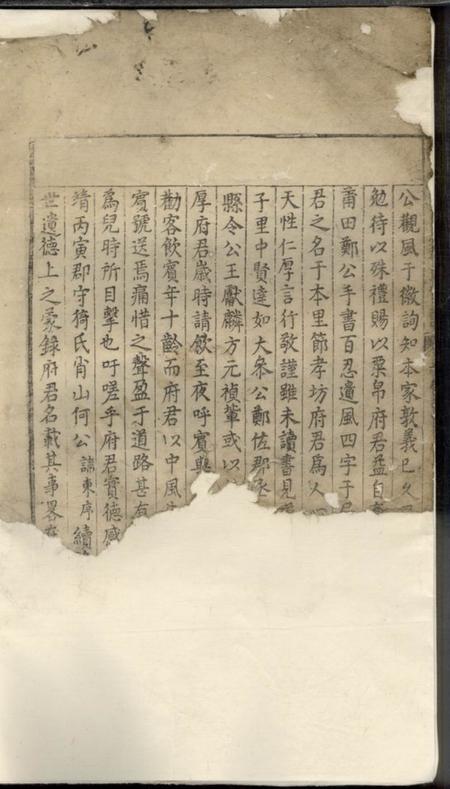 公觀風于徽詢知本家敦義已久
勉待以殊禮賜以粟帛府君益自
莆田鄭公手書百忍遺風四字于
君之名于本里節孝坊府君爲人
天性仁厚言行敬謹雖未讀書見
子里中賢達如大叅公鄭佐郡丞
縣令公王獻麟方元禎輩或以
厚府君歲時請飲至夜呼賓與
勸客飲賓年十齡而府君以中風
賓號送焉痛惜之聲盈于道路甚有
爲兒時所目擊也吁嗟乎府君實德感
靖丙寅郡守猗氏肖山何公諱東序續
世遺德上之彔錄府君名載其事畧